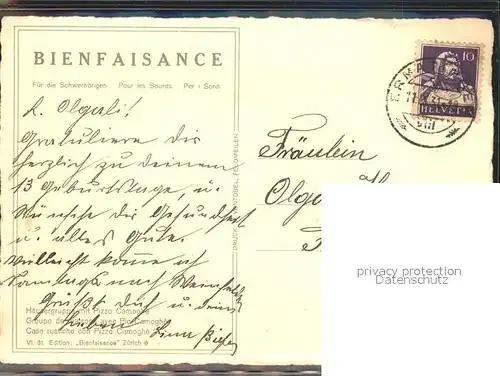 BIENFAISANCE
Für die Schwerhörigen Pour les Sourds Per i Sordi
L. Olgali!
Gratuliere dir
herzlich zu deinem
13 Geburtstage, u.
Wünsche dir Gesundheit
u. alles Gute.
Vielleicht komme ich
Samstags nach Weinfelden
Grüsst dich u. deine
lieben
Häusergruppe mit Pizzo Camoghè
Groupe de maisons avec Pizzo Camoghè
Case rustiche con Pizzo Camoghè
VI. 31. Edition: „Bienfaisance" Zürich 6
10
HELVETIA
Fräulein
Olga
privacy protection
Datenschutz